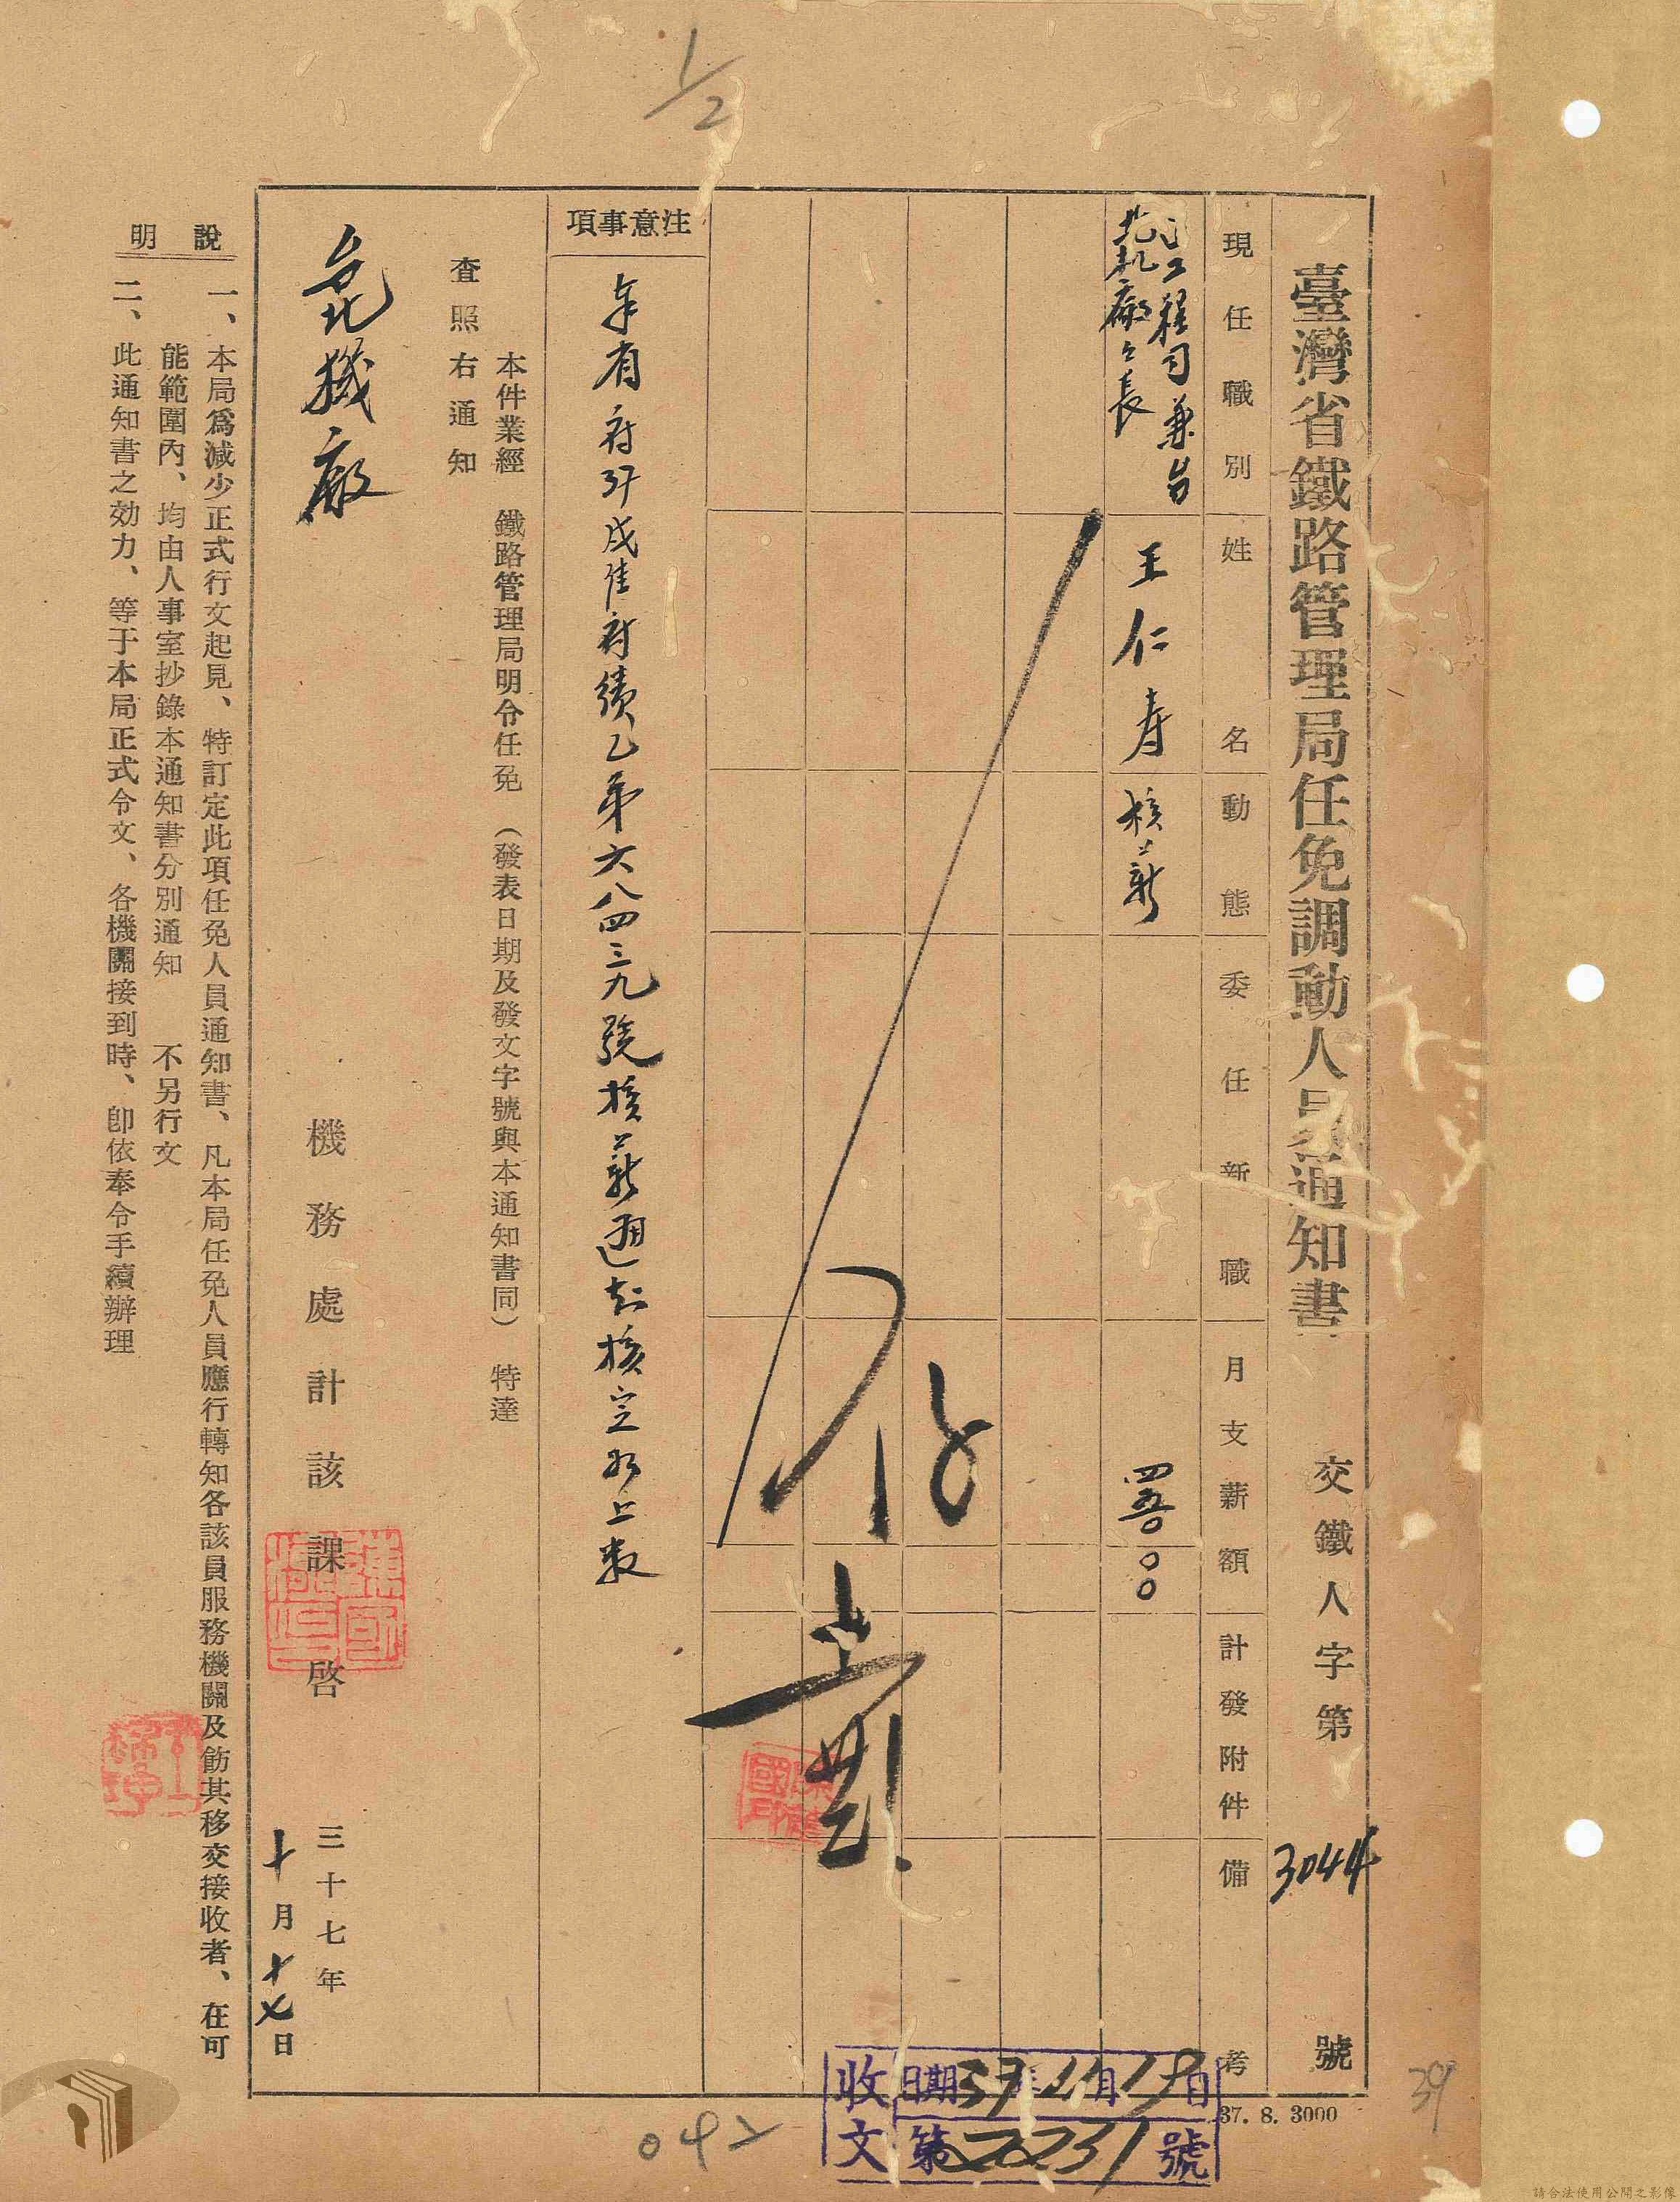 臺灣省鐵路管理局任免調動人員通知書 交鐵人字第3044號
現任職別
姓名
動態
委任新職
月支薪額
計發附件
備考
工程司兼台
北机廠々長
王仁寿
核薪
四五〇〇〇
存
注意事項
奉省府37戌佳府績乙第六八四三九號核薪通知核定如上數
本件業經 鐵路管理局明令任免 (發表日期及發文字號與本通知書同) 特達
查照右通知
台北機廠
機務處計該課啓
三十七年
十月十七日
說明
一、本局爲減少正式行文起見、特訂定此項任免人員通知書、凡本局任免人員應行轉知各該員服務機關及飭其移交接收者、在可
能範圍內、均由人事室抄錄本通知書分別通知 不另行文
二、此通知書之効力、等于本局正式令文、各機關接到時、卽依奉令手續辦理
37. 8. 3000
收文
日期37年11月19日
第20231號
1/2
042
39
請合法使用公開之影像